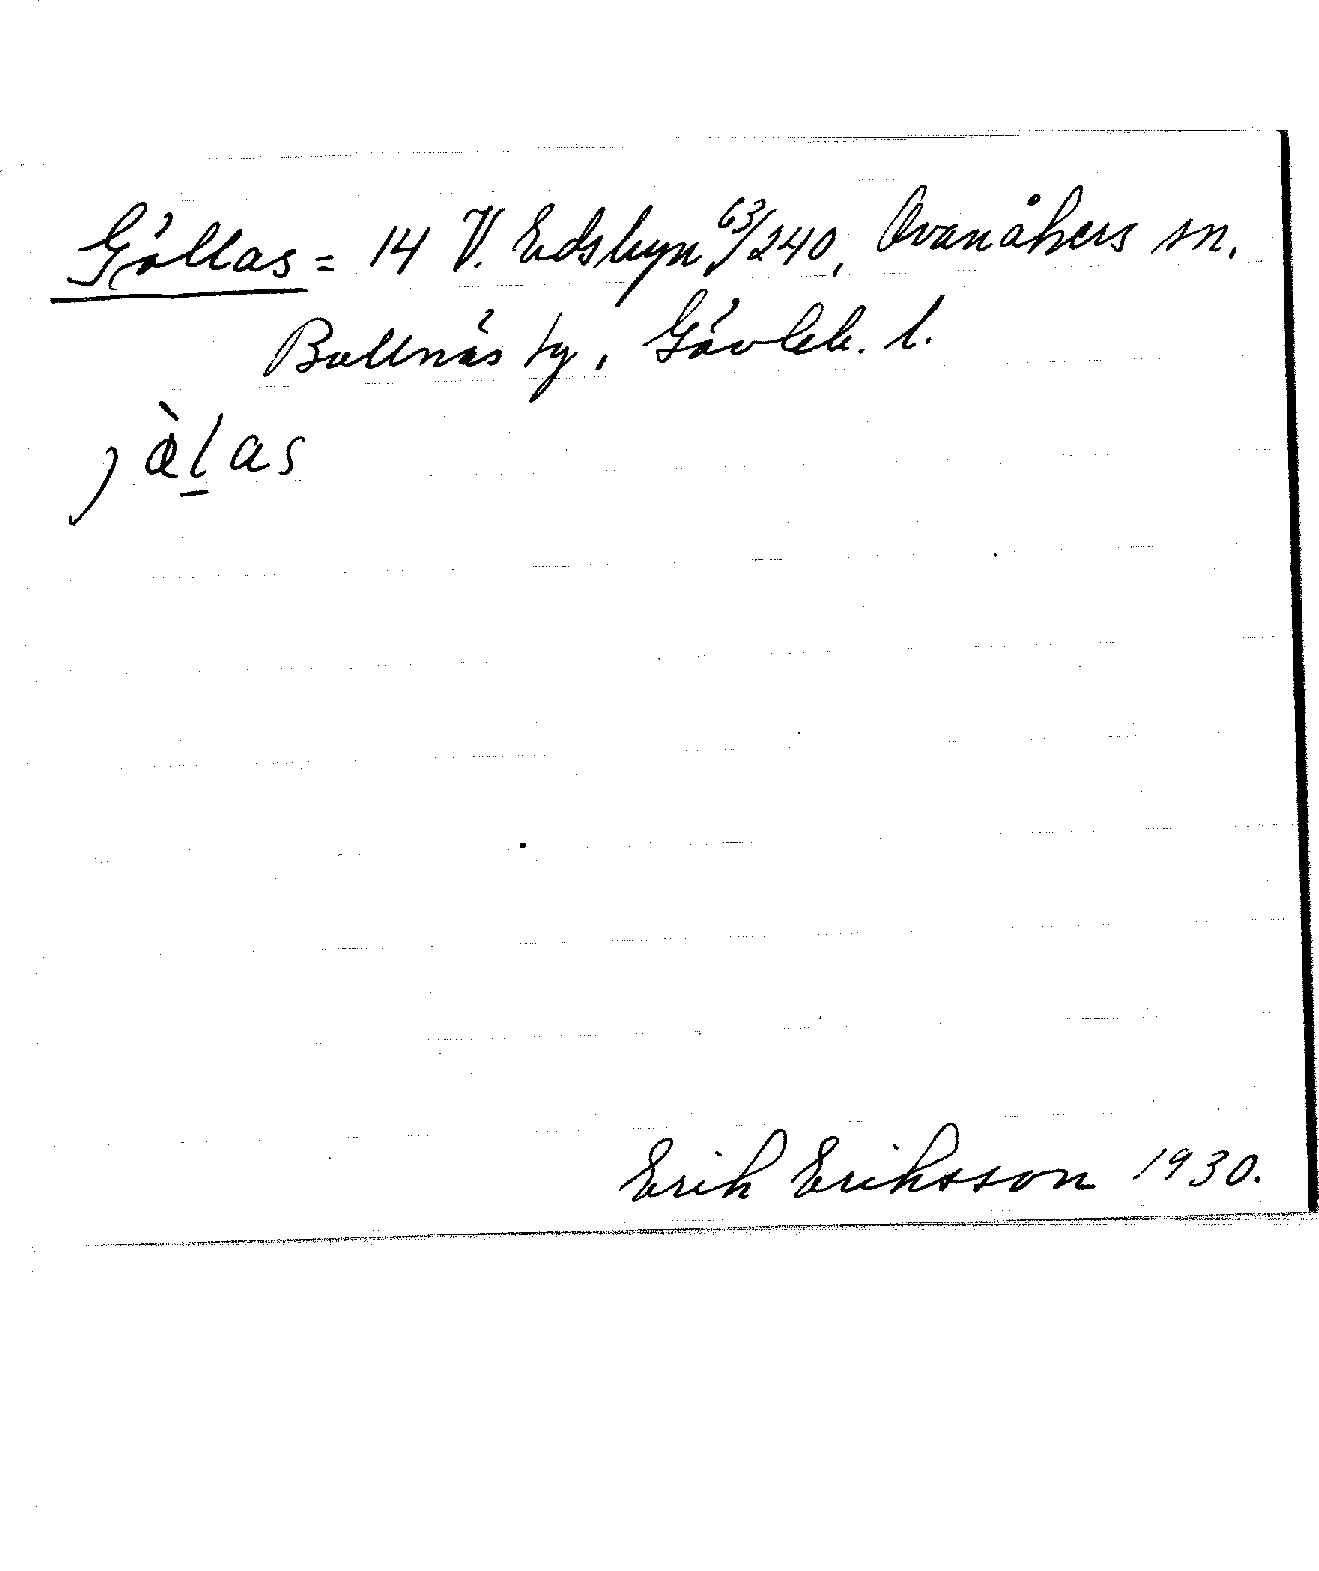 Gällas = 14 V. Edsbyn 63/240, Ovanåkers sn.
Bollnäs tg, Gävleb. l.
jàlas
Erik Eriksson 1930.